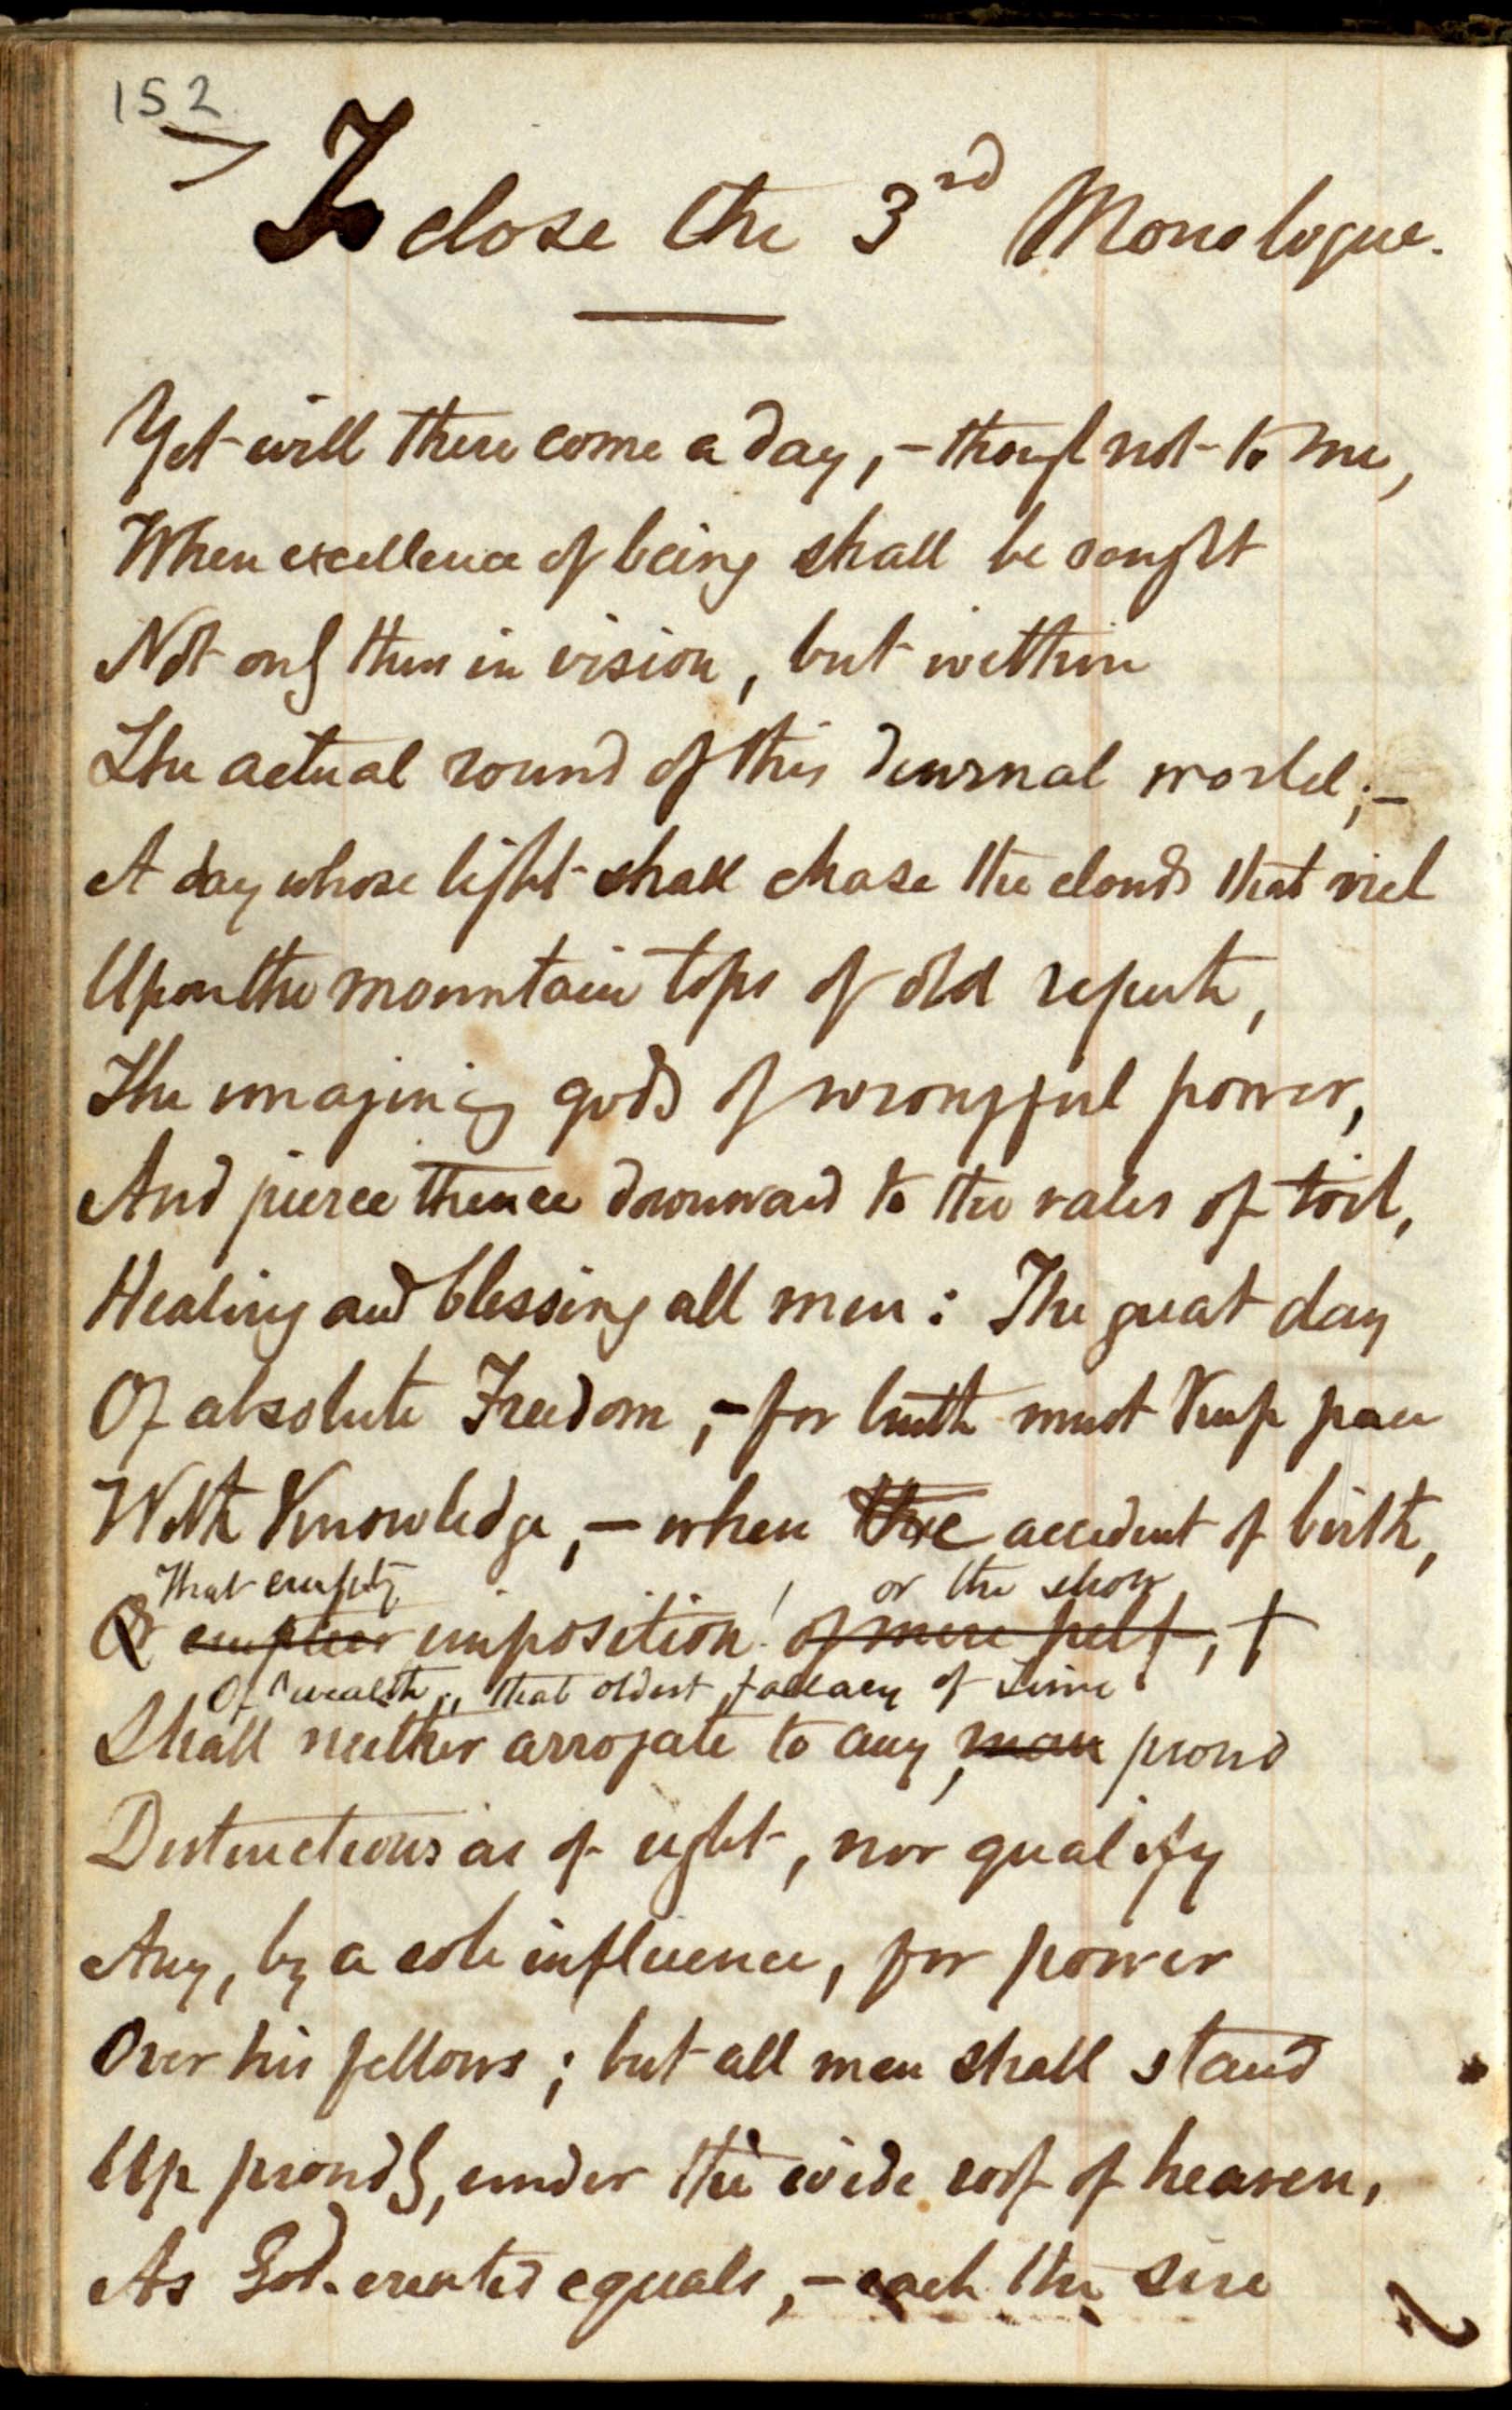 152
To close the 3rd Monologue.
Yet will there come a day, – though not to me,
When excellence of being shall be sought
Not only thus in vision, but within
The actual round of this diurnal world; –
A day whose light shall chase the clouds that veil
Upon the mountain tops of old repute,
The imagining gods of wrongful power,
And pierce thence downward to the vales of toil,
Healing and blessing all men: The great day
Of absolute Freedom, – for truth must keep pace
With Knowledge, – when the accident of birth,
That empty or the show
Or emptier imposition! of mere pelf, +
Of wealth, that oldest fallacy of Time
Shall neither arrogate to any, man proud
Distinctions as of right, nor qualify
Any, by a sole influence, for power
Over his fellows; but all men shall stand
Up proudly, under the wide roof of heaven,
As God-created equals, – each the sire